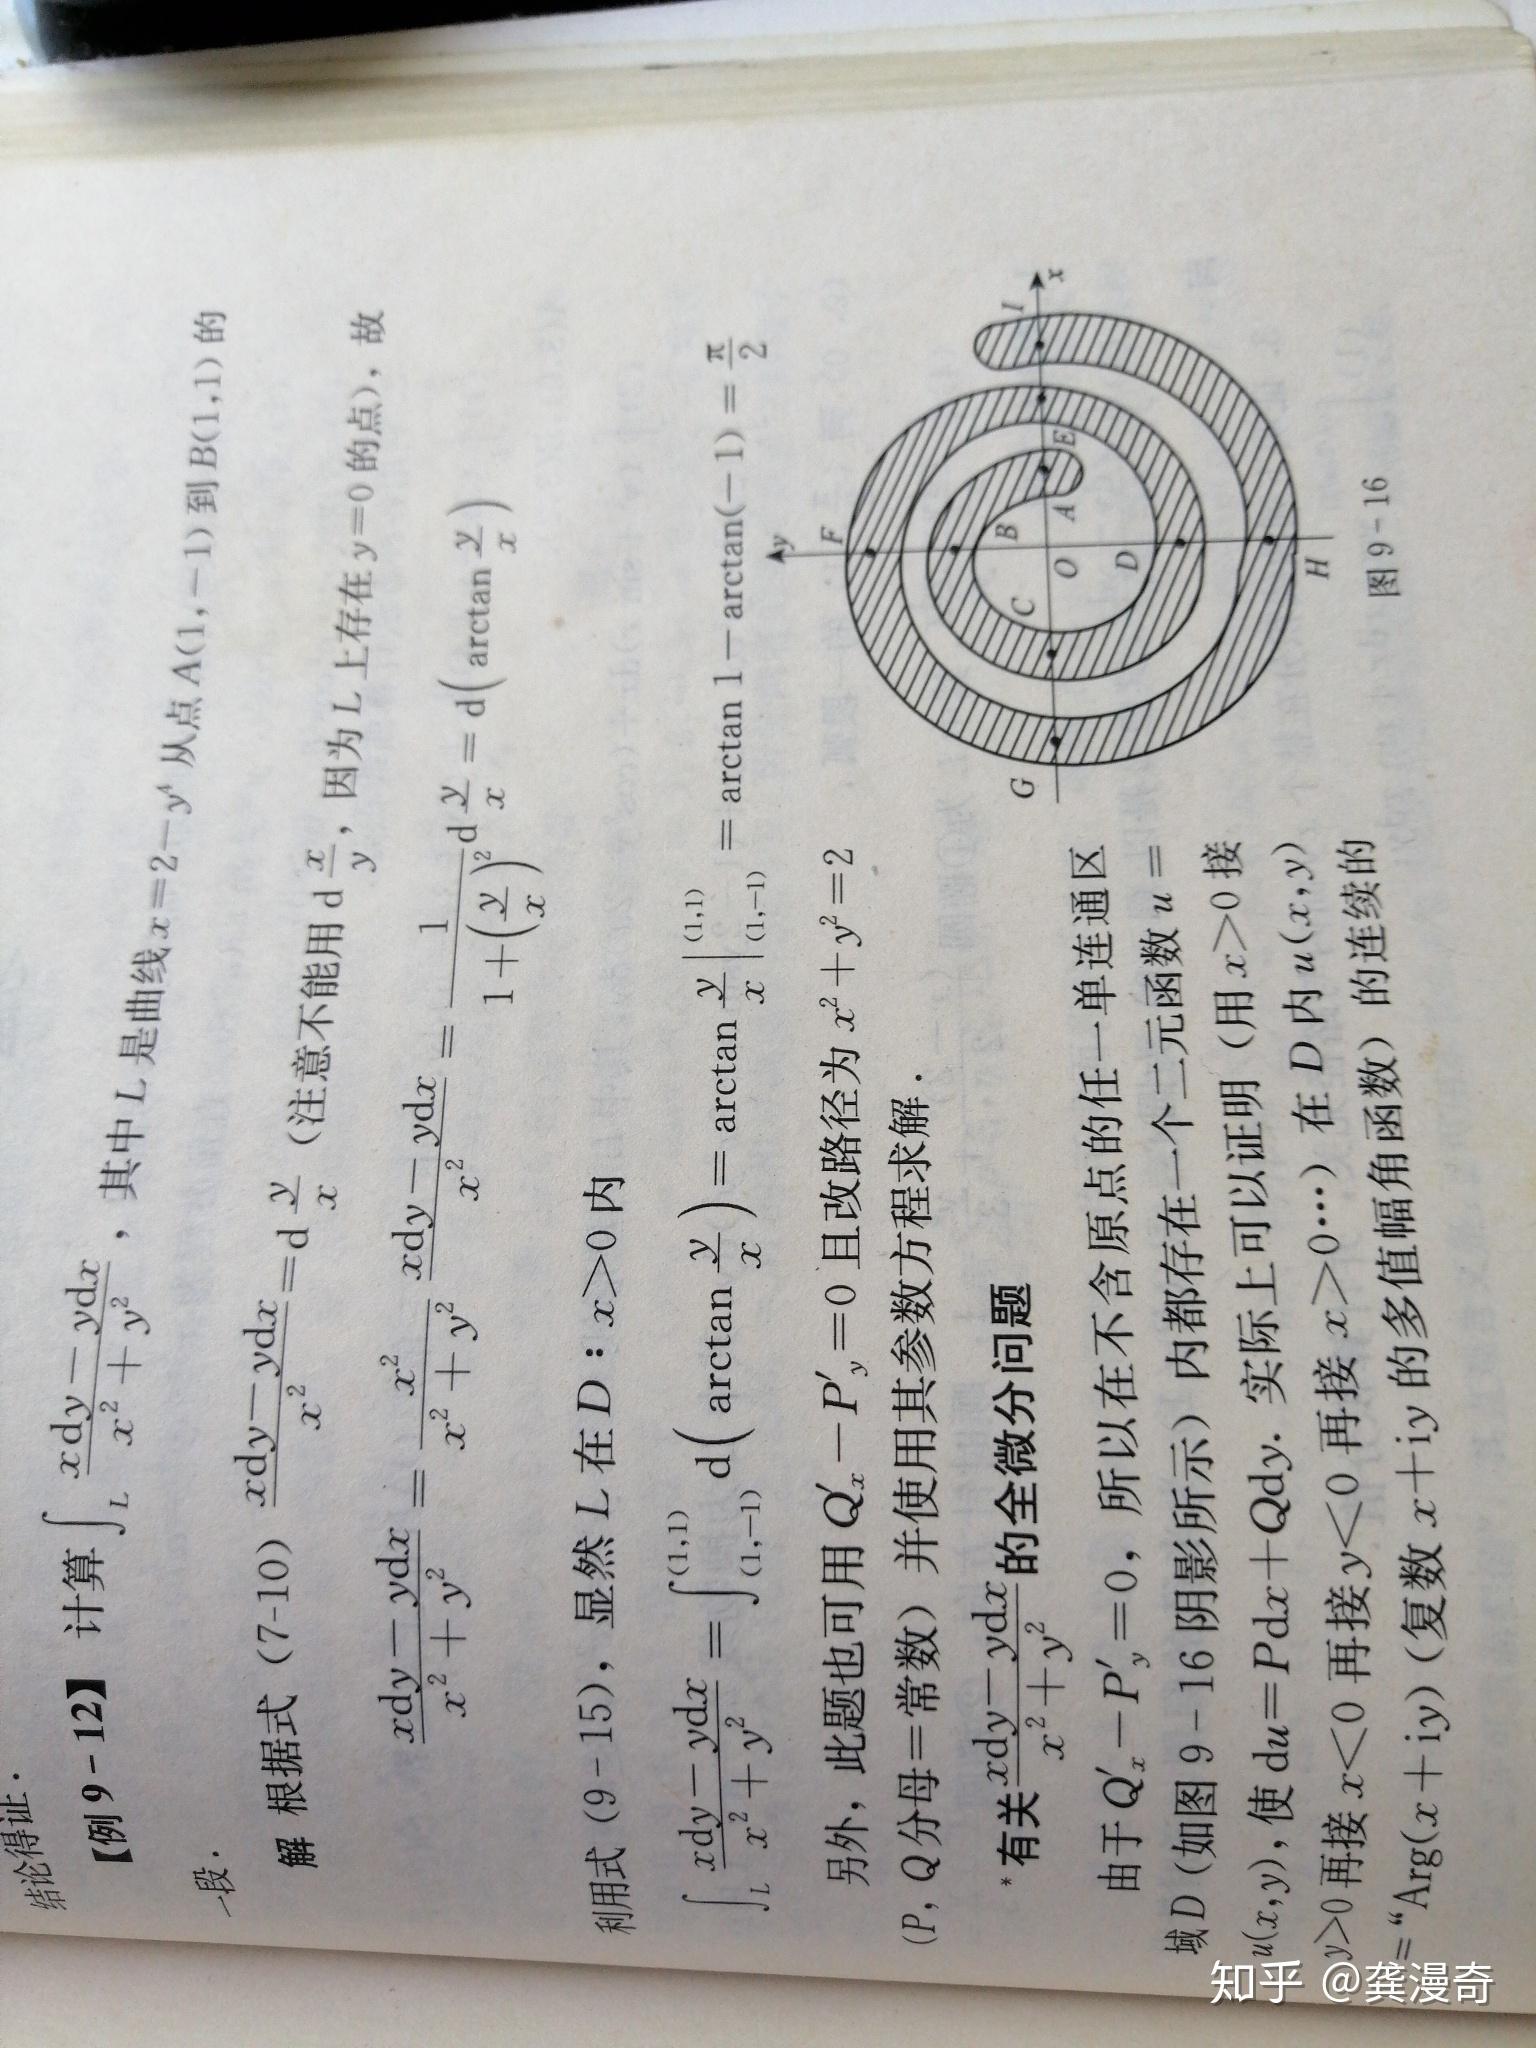 结论得证.
【例 9-12】 计算∫_L (xdy-ydx)/(x²+y²), 其中 L 是曲线 x=2-y⁴ 从点 A(1,-1) 到 B(1,1) 的
一段.
解 根据式 (7-10) (xdy-ydx)/x² = d y/x (注意不能用 d x/y, 因为 L 上存在 y=0 的点), 故
(xdy-ydx)/(x²+y²) = x²/(x²+y²) (xdy-ydx)/x² = 1/(1+(y/x)²) d y/x = d(arctan y/x)
利用式 (9-15), 显然 L 在 D: x>0 内
∫_L (xdy-ydx)/(x²+y²) = ∫_(1,-1)^(1,1) d(arctan y/x) = arctan y/x |_(1,-1)^(1,1) = arctan 1-arctan(-1) = π/2
另外, 此题也可用 Q′x-P′y=0 且改路径为 x²+y²=2
(P, Q 分母=常数) 并使用其参数方程求解.
*有关 (xdy-ydx)/(x²+y²) 的全微分问题
由于 Q′x-P′y=0, 所以在不含原点的任一单连通区
域 D (如图 9-16 阴影所示) 内都存在一个二元函数 u=
u(x,y), 使 du=Pdx+Qdy. 实际上可以证明 (用 x>0 接
y>0 再接 x<0 再接 y<0 再接 x>0…) 在 D 内 u(x,y)
="Arg(x+iy) (复数 x+iy 的多值幅角函数) 的连续的
y
F
B
C
O
A
E
I
x
G
D
H
图 9-16
知乎 @龚漫奇